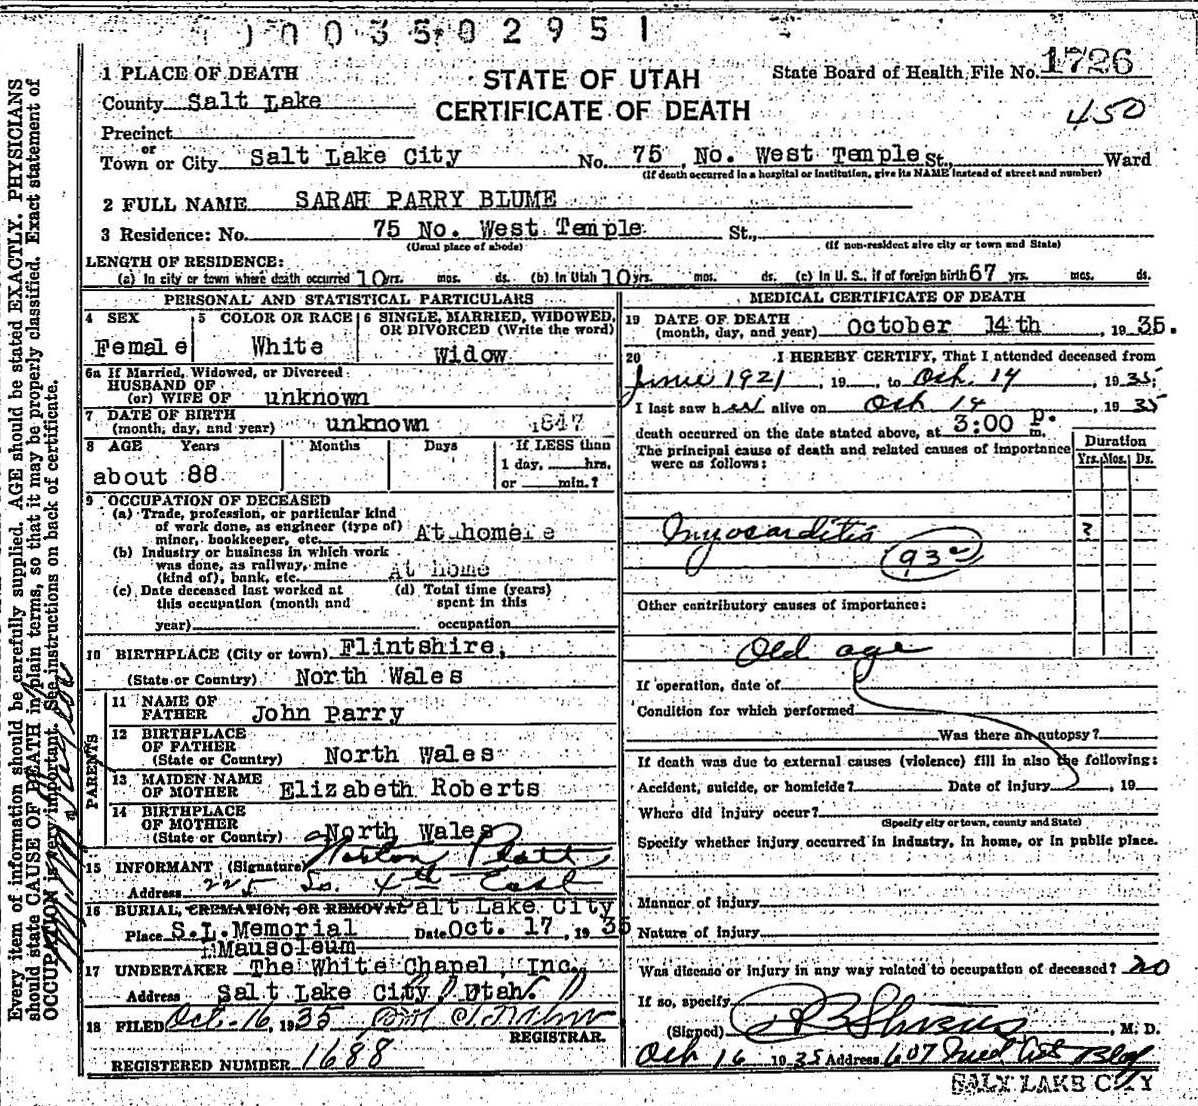 0 0 3 5 0 2 9 5 1
1 PLACE OF DEATH
STATE OF UTAH
State Board of Health File No. 1726
County Salt Lake
CERTIFICATE OF DEATH
450
Precinct
or
Town or City Salt Lake City No. 75 No. West Temple St., Ward
(If death occurred in a hospital or institution, give its NAME instead of street and number)
2 FULL NAME SARAH PARRY BLUME
3 Residence: No. 75 No. West Temple St.,
(Usual place of abode) (If non-resident give city or town and State)
LENGTH OF RESIDENCE:
(a) In city or town where death occurred 10 yrs. mos. ds. (b) In Utah 10 yrs. mos. ds. (c) In U. S., if of foreign birth 67 yrs. mos. ds.
PERSONAL AND STATISTICAL PARTICULARS
4 SEX 5 COLOR OR RACE 6 SINGLE, MARRIED, WIDOWED, OR DIVORCED (Write the word)
Female White Widow
6a If Married, Widowed, or Divorced
HUSBAND OF
(or) WIFE OF unknown
7 DATE OF BIRTH
(month, day, and year) unknown 1847
8 AGE Years Months Days If LESS than
about 88 1 day, hrs.
or min.?
9 OCCUPATION OF DECEASED
(a) Trade, profession, or particular kind
of work done, as engineer (type of)
minor, bookkeeper, etc. At home
(b) Industry or business in which work
was done, as railway, mine
(kind of), bank, etc. At home
(c) Date deceased last worked at (d) Total time (years)
this occupation (month and spent in this
year) occupation
10 BIRTHPLACE (City or town) Flintshire,
(State or Country) North Wales
PARENTS
11 NAME OF
FATHER John Parry
12 BIRTHPLACE
OF FATHER
(State or Country) North Wales
13 MAIDEN NAME
OF MOTHER Elizabeth Roberts
14 BIRTHPLACE
OF MOTHER
(State or Country) North Wales
15 INFORMANT (Signature) Platt
Address 225 So. 4th East
16 BURIAL, CREMATION, OR REMOVAL Salt Lake City
Place S.L. Memorial Date Oct. 17, 1935
Mausoleum
17 UNDERTAKER The White Chapel, Inc.,
Address Salt Lake City, Utah.
18 FILED Oct. 16, 1935
REGISTRAR.
REGISTERED NUMBER 1688
MEDICAL CERTIFICATE OF DEATH
19 DATE OF DEATH
(month, day, and year) October 14th, 1935.
20 I HEREBY CERTIFY, That I attended deceased from
June 1921, 19 , to Oct. 14, 1935,
I last saw her alive on Oct 14, 1935
death occurred on the date stated above, at 3:00 p. m.
The principal cause of death and related causes of importance
were as follows:
Duration
Yrs. Mos. Ds.
Myocarditis
93c
Other contributory causes of importance:
Old age
If operation, date of
Condition for which performed
Was there an autopsy?
If death was due to external causes (violence) fill in also the following:
Accident, suicide, or homicide? Date of injury , 19
Where did injury occur?
(Specify city or town, county and State)
Specify whether injury occurred in industry, in home, or in public place.
Manner of injury
Nature of injury
Was disease or injury in any way related to occupation of deceased? no
If so, specify
(Signed) , M. D.
Oct 16 1935 Address 607 Med Arts Bldg
SALT LAKE CITY
Every item of information should be carefully supplied. AGE should be stated EXACTLY. PHYSICIANS
should state CAUSE OF DEATH in plain terms, so that it may be properly classified. Exact statement of
OCCUPATION is very important. See instructions on back of certificate.